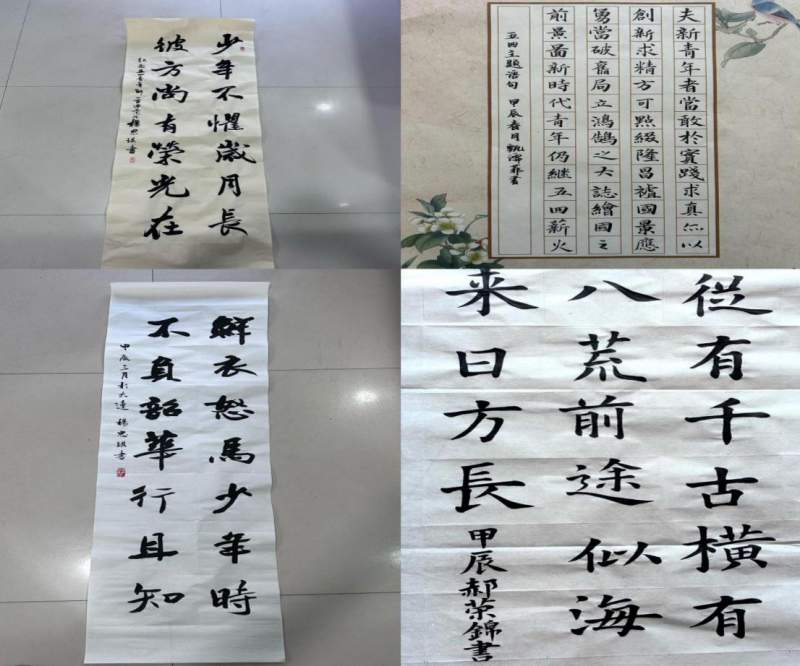 少年不懼歲月長
彼方尚有榮光在
夫新青年者當敢於實踐求真以
創新求精方可點綴隆昌國景應
勇當破舊局立鴻鵠之大誌繪國之
前景啚新時代青年仍繼五四薪火
五四主題語句 甲辰春月 書
鮮衣怒馬少年時
不負韶華行且知
甲辰三月於大連 書
從有千古橫有
八荒前途似海
来日方長
甲辰郝荣錦書